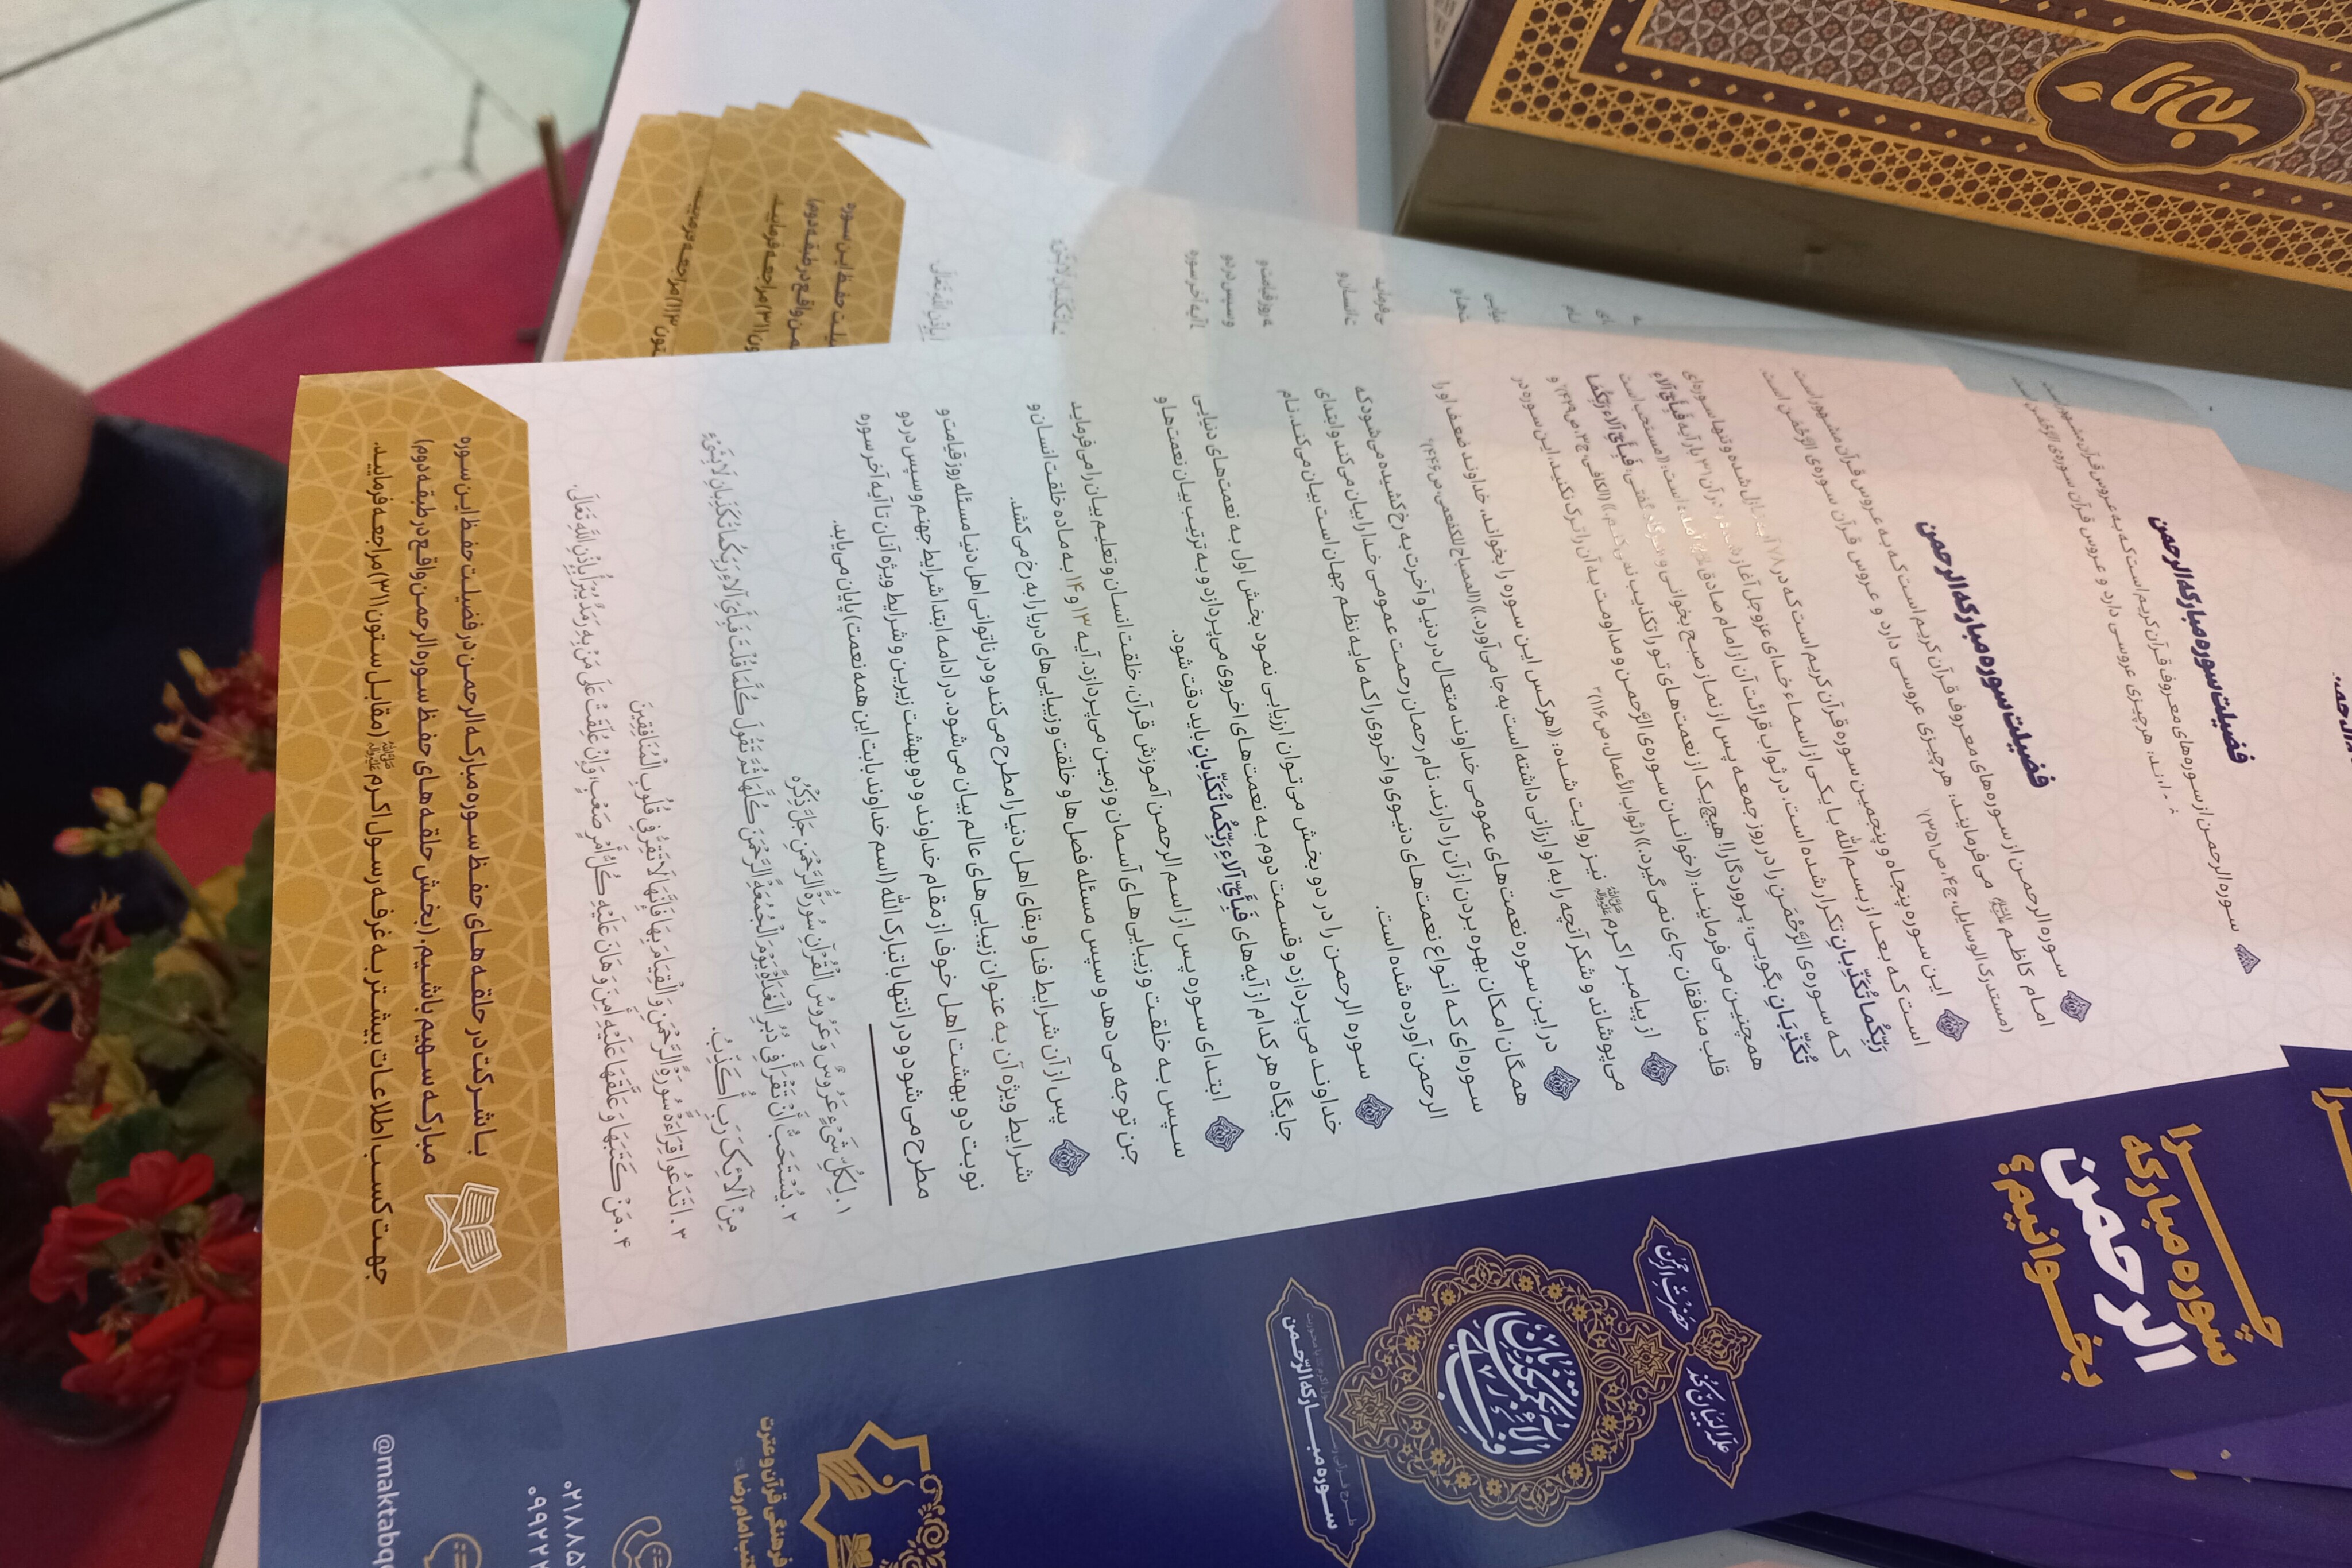 چـــرا
سوره مبارکه
الرحمن
بخـوانیم؟
حضرت رحمن
علم البیان بخد
فبای آلاء ربکما تکذبان
سـوره مبـــارکه الرّحـمن
فضیلت سوره مبارکه الرحمن
سوره الرحمن از سوره‌های معروف قرآن کریم است که به عروس قرآن مشهور است.
امام کاظم می‌فرمایند: هرچیزی عروسی دارد و عروس قرآن سوره‌ی الرّحمٰن است
(مستدرک الوسایل، ج۴، ص۳۵۱)۱
این سوره پنجاه و پنجمین سوره قرآن کریم است که در ۷۸ آیه نازل شده و تنها سوره‌ای
است که بعد از بسم الله با یکی از اسماء خدای عزوجل آغاز شده و در آن ۳۱ بار آیه فَبِأَيِّ آلَاءِ
رَبِّكُمَا تُكَذِّبَانِ تکرار شده است. در ثواب قرائت آن از امام صادق آمده است: ((مستحب است
که سوره‌ی الرّحْمَن را در روز جمعه پس از نماز صبح بخوانی و هرگاه گفتی: فَبِأَيِّ آلَاءِ رَبِّكُمَا
تُكَذِّبَانِ بگویی: پروردگارا! هیچ‌یک از نعمت‌های تو را تکذیب نمی‌کنیم.)) (الکافی، ج۳، ص۴۲۹)۲ و
همچنین می‌فرمایند: ((خواندن سوره‌ی الرّحمن و مداومت به آن را ترک نکنید، این سوره در
قلب منافقان جای نمی‌گیرد.)) (ثواب الأعمال، ص۱۱۶)۳
از پیامبر اکرم نیز روایت شده: ((هرکس این سوره را بخواند، خداوند ضعف او را
می‌پوشاند و شکر آنچه را به او ارزانی داشته است به جا می‌آورد.)) (المصباح للکفعمی، ص۴۴۶)۴
در این سوره نعمت‌های عمومی خداوند متعال در دنیا و آخرت به رخ کشیده می‌شود که
همگان امکان بهره بردن از آن را دارند. نام رحمان رحمت عمومی خدا را بیان می‌کند و ابتدای
سوره‌ای که انواع نعمت‌های دنیوی و اخروی را که مایه نظم جهان است بیان می‌کند، نام
الرحمن آورده شده است.
سوره الرحمن را در دو بخش می‌توان ارزیابی نمود بخش اول به نعمت‌های دنیایی
خداوند می‌پردازد و قسمت دوم به نعمت‌های اخروی می‌پردازد و به ترتیب بیان نعمت‌ها و
جایگاه هر کدام از آیه‌های فَبِأَيِّ آلَاءِ رَبِّكُمَا تُكَذِّبَانِ باید دقت شود.
ابتدای سوره پس از اسم الرحمن آموزش قرآن، خلقت انسان و تعلیم بیان را می‌فرماید
سپس به خلقت و زیبایی‌های آسمان و زمین می‌پردازد. آیه ۱۳ و ۱۴ به ماده خلقت انسان و
جن توجه می‌دهد و سپس مسئله فصل‌ها و خلقت و زیبایی‌های دریا را به رخ می‌کشد.
پس از آن شرایط فنا و بقای اهل دنیا را مطرح می‌کند و در ناتوانی اهل دنیا مسئله روز قیامت و
شرایط ویژه آن به عنوان زیبایی‌های عالم بیان می‌شود. در ادامه ابتدا شرایط جهنم و سپس در دو
نوبت دو بهشت اهل خوف از مقام خداوند و دو بهشت زیرین و شرایط ویژه آنان تا آیه آخر سوره
مطرح می‌شود و در انتها با تبارک الله (اسم خداوند بابت این همه نعمت) پایان می‌یابد.
۱. لِكُلِّ شَيْءٍ عَرُوسٌ وَ عَرُوسُ الْقُرْآنِ سُورَةُ الرَّحْمَنِ جَلَّ ذِكْرُهُ
۲. يُسْتَحَبُّ أَنْ تَقْرَأَ فِي دُبُرِ الْغَدَاةِ يَوْمَ الْجُمُعَةِ الرَّحْمَنَ كُلَّهَا ثُمَّ تَقُولَ كُلَّمَا قُلْتَ فَبِأَيِّ آلَاءِ رَبِّكُمَا تُكَذِّبَانِ لَا بِشَيْءٍ
مِنْ آلَائِكَ رَبِّ أُكَذِّبُ.
۳. لَا تَدَعُوا قِرَاءَةَ سُورَةِ الرَّحْمَنِ وَ الْقِيَامَ بِهَا فَإِنَّهَا لَا تَقِرُّ فِي قُلُوبِ الْمُنَافِقِينَ
۴. مَنْ كَتَبَهَا وَ عَلَّقَهَا عَلَيْهِ أَمِنَ وَ هَانَ عَلَيْهِ كُلُّ أَمْرٍ صَعْبٍ، وَ إِنْ عُلِّقَتْ عَلَى مَنْ بِهِ رَمَدٌ يَبْرَأُ بِإِذْنِ اللَّهِ تَعَالَى.
با شرکت در حلقه‌های حفظ سوره مبارکه الرحمن در فضیلت حفظ این سوره
مبارکه سهیم باشیم. (بخش حلقه‌های حفظ سوره الرحمن واقع در طبقه دوم)
جهت کسب اطلاعات بیشتر به غرفه رسول اکرم (مقابل ستون ۳۱۱) مراجعه فرمایید.
فرهنگی قرآن و عترت
امام رضا
۰۲۱۸۸۵
۰۹۹۲۲
@maktabq
فضیلت سوره مبارکه الرحمن
سوره الرحمن از سوره‌های معروف قرآن کریم است که به عروس قرآن مشهور است.
هرچیزی عروسی دارد و عروس قرآن سوره‌ی الرّحمٰن است